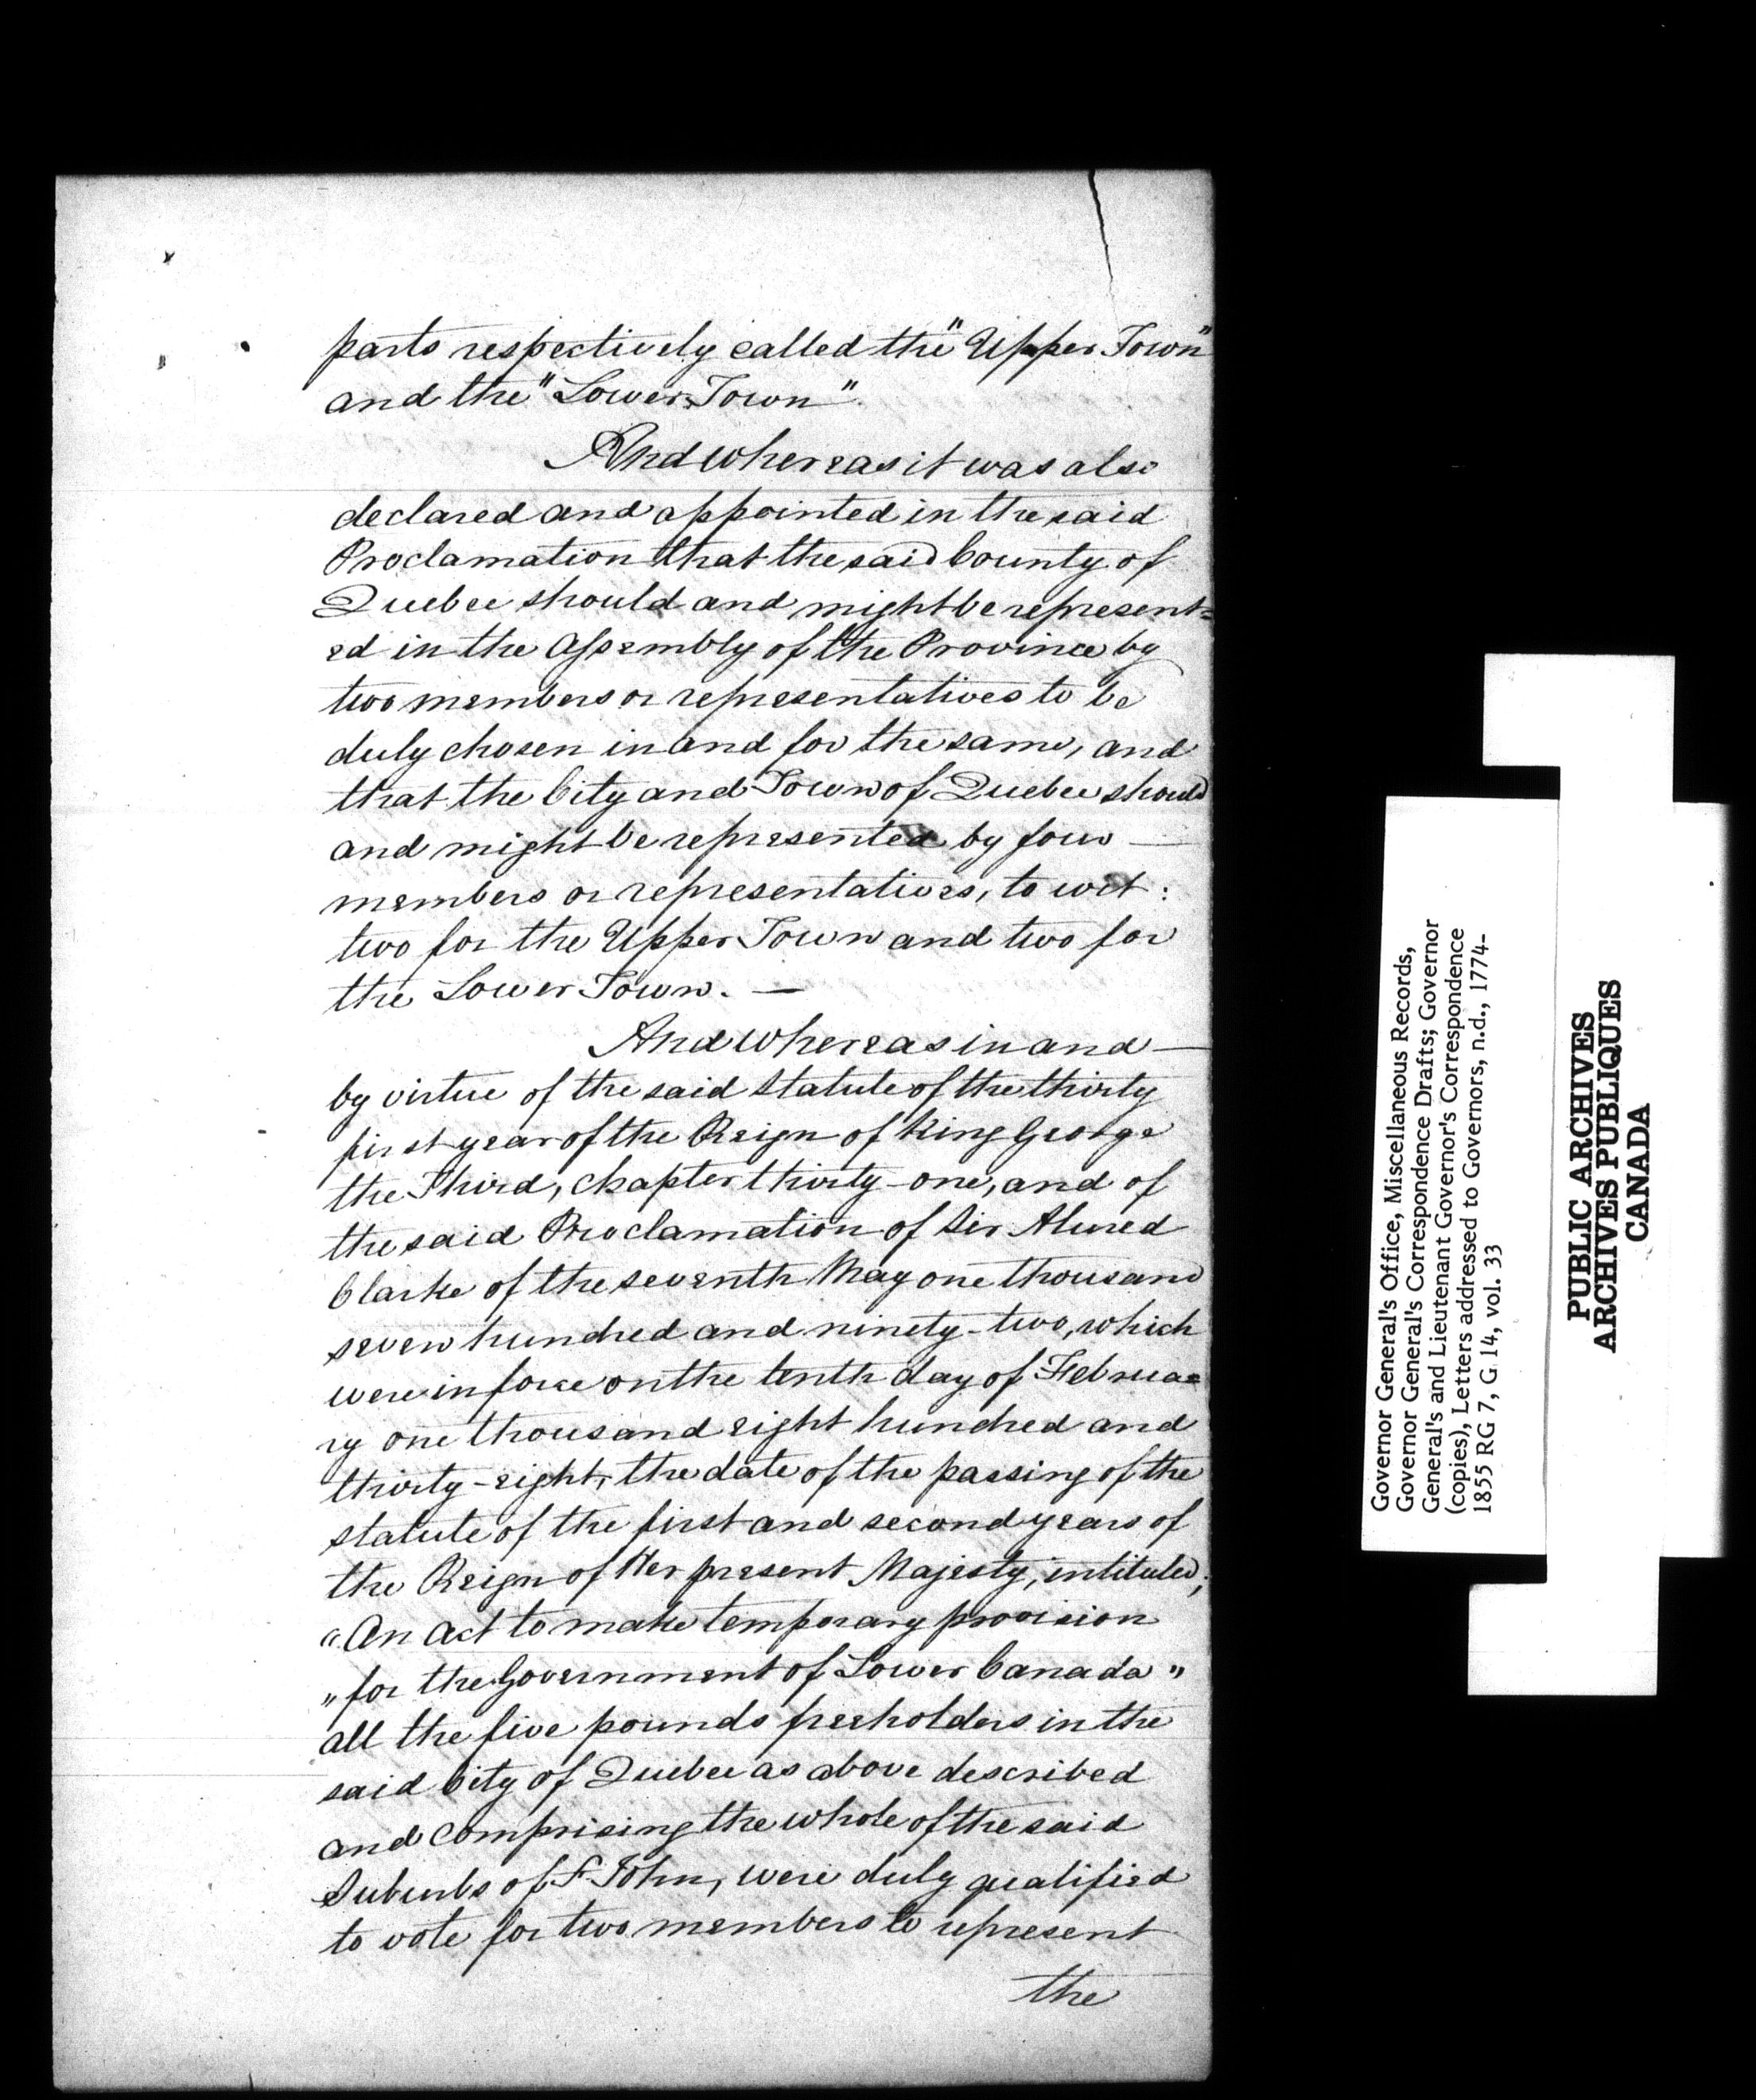 parts respectively called the "Upper Town"
and the "Lower Town".
And whereas it was also
declared and appointed in the said
Proclamation that the said County of
Quebec should and might be represent=
ed in the Assembly of the Province by
two members or representatives to be
duly chosen in and for the same, and
that the City and Town of Quebec should
and might be represented by four —
members or representatives, to wit:
two for the Upper Town and two for
the Lower Town. —
And whereas in and —
by virtue of the said Statute of the thirty
first year of the Reign of King George
the Third, chapter thirty-one, and of
the said Proclamation of Sir Alured
Clarke of the seventh May one thousand
seven hundred and ninety-two, which
were in force on the tenth day of Februa=
ry one thousand eight hundred and
thirty-eight, the date of the passing of the
statute of the first and second years of
the Reign of Her present Majesty, intituled;
"An Act to make temporary provision
"for the Government of Lower Canada"
all the five pounds freeholders in the
said City of Quebec as above described
and comprising the whole of the said
Suburbs of St John, were duly qualified
to vote for two members to represent
the
Governor General's Office, Miscellaneous Records,
Governor General's Correspondence Drafts; Governor
General's and Lieutenant Governor's Correspondence
(copies), Letters addressed to Governors, n.d., 1774-
1855 RG 7, G 14, vol. 33
PUBLIC ARCHIVES
ARCHIVES PUBLIQUES
CANADA